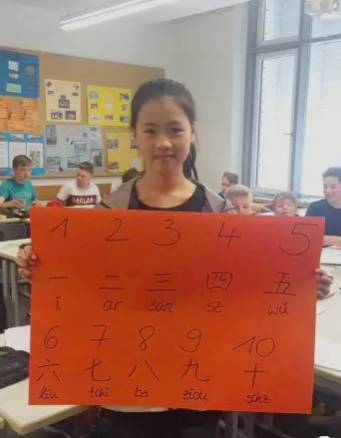 1 2 3 4 5
一 二 三 四 五
ī ar san sz wǔ
6 7 8 9 10
六 七 八 九 十
liu tchi ba ziou schz